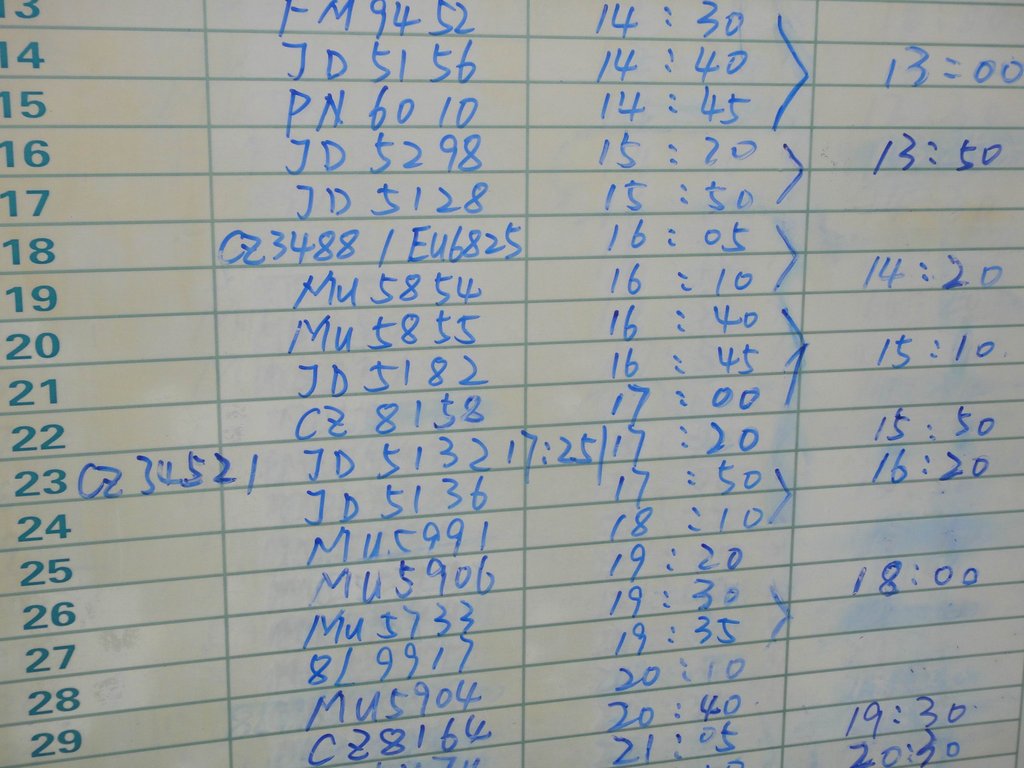 13 FM9452 14:30
14 JD5156 14:40 13:00
15 PN6010 14:45
16 JD5298 15:20 13:50
17 JD5128 15:50
18 CZ3488/EU6825 16:05
19 MU5854 16:10 14:20
20 MU5855 16:40
21 JD5182 16:45 15:10
22 CZ8158 17:00
23 CZ3452/ JD5132 17:25/17:20 15:50
JD5136 17:50 16:20
24 MU5991 18:10
25 MU5906 19:20
26 MU5733 19:30 18:00
27 8L9917 19:35
28 MU5904 20:10
29 CZ8164 20:40 19:30
21:05 20:30